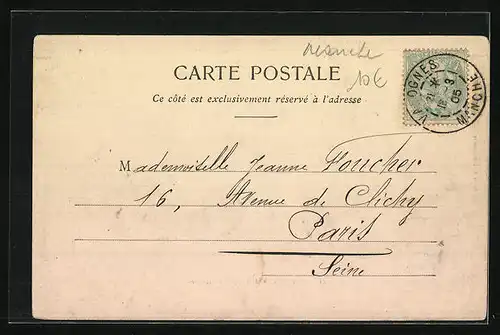 Manche
10€
CARTE POSTALE
Ce côté est exclusivement réservé à l'adresse
VALOGNES
18 -3
05
MANCHE
Mademoiselle Jeanne Foucher
16, Avenue de Clichy
Paris
Seine